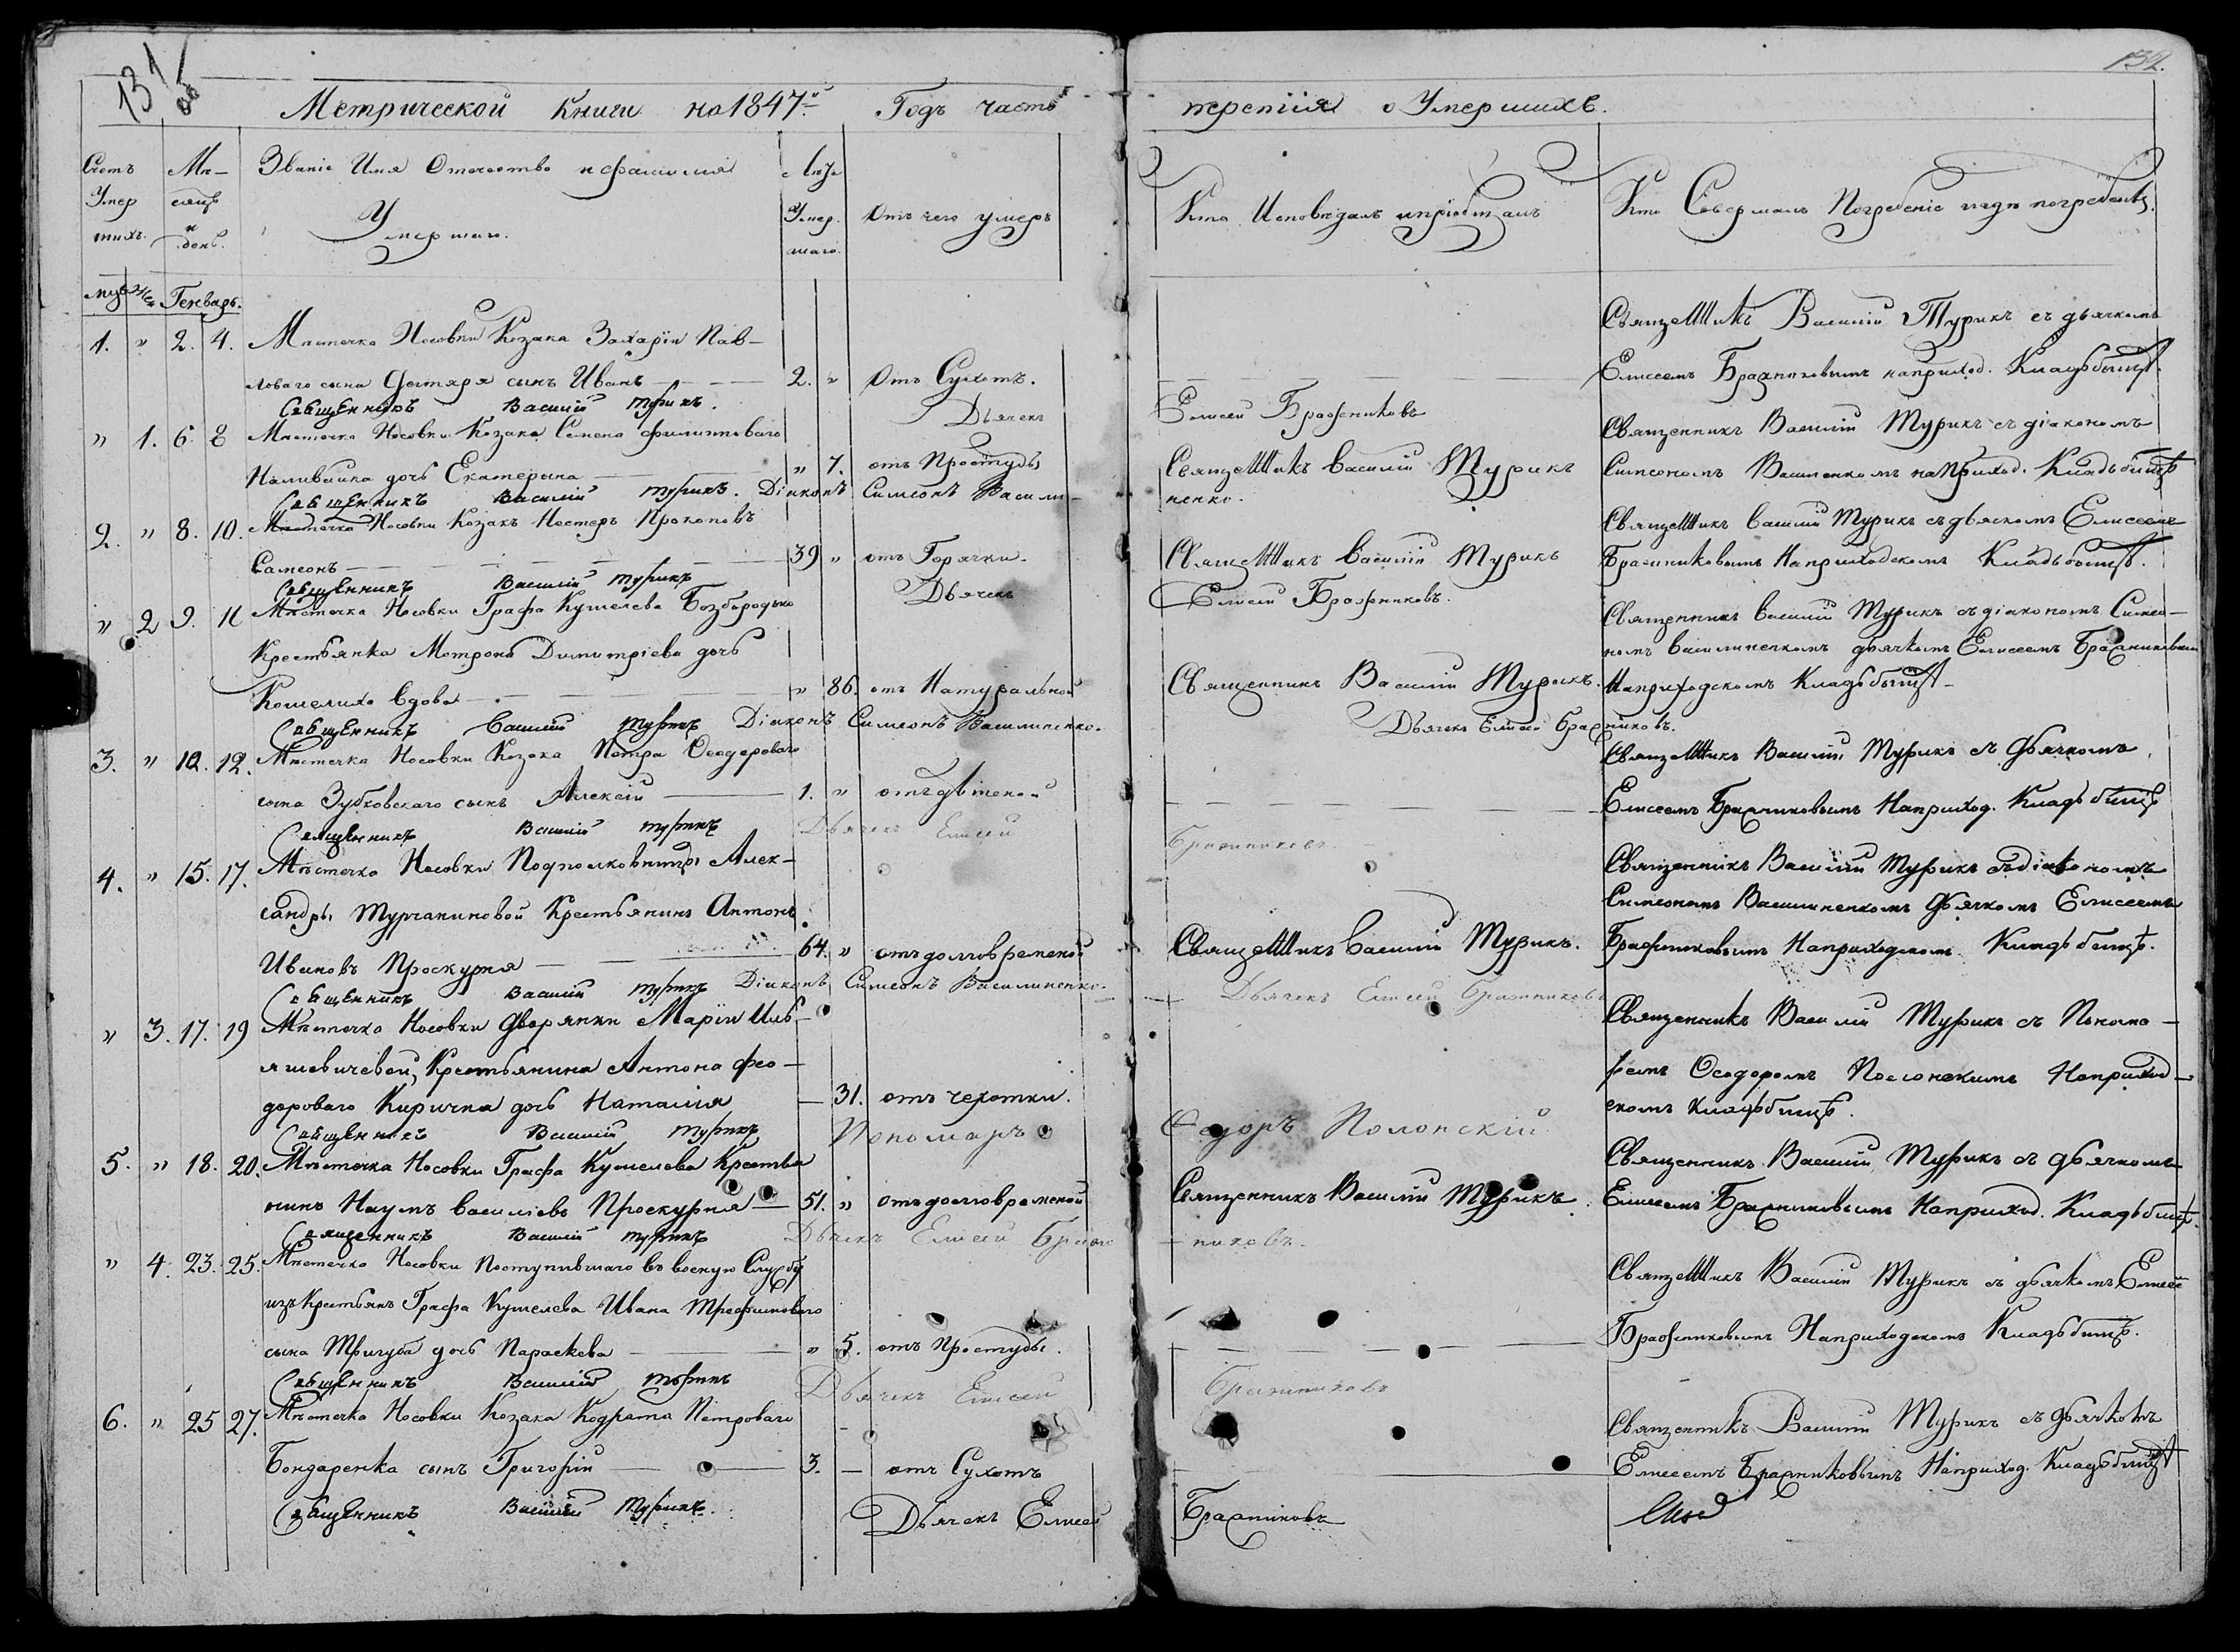 131
об
132.
Метрической Книги на 1847й Годъ часть
третіия о Умершихъ.
Счетъ Умер шихъ.
Мѣ— сяцъ и день.
Званіе Имя Отечество и фамилія
Умершаго.
Лѣта Умер. шаго.
Отъ чего умеръ
Кто Исповѣдалъ и пріобщалъ
Кто Совершалъ Погребеніе и гдѣ погребенъ.
муж Жен Генварь.
1. " 2. 4. Мѣстечка Носовки Козака Захарія Пав—
ловаго сына Дегтяря сынъ Иванъ — 2. " Отъ Сухотъ.
Священникъ Василій Турикъ. Дьячекъ
Елисей Бражниковъ
Священникъ Василій Турикъ съ дьячкомъ
Елисеемъ Бражниковымъ наприход. Кладбищѣ.
" 1. 6. 8 Мѣстечка Носовки Козака Семена филиповаго
Наливайка дочь Екатерина — " 7. отъ Простуды
Священникъ Василій Турикъ. Діаконъ Симеонъ Васили—
Священникъ Василій Турикъ
ненко.
Священникъ Василій Турикъ съ діакономъ
Симеономъ Василенкомъ наприход. Кладбищѣ
2. " 8. 10. Мѣстечка Носовки Козакъ Нестеръ Прокоповъ
Самсонъ — 39 " отъ Горячки.
Священникъ Василій Турикъ Дьячекъ
Священникъ Василій Турикъ
Елисей Бражниковъ.
Священникъ Василій Турикъ съ дьячкомъ Елисеемъ
Бражниковымъ Наприходскомъ Кладбищѣ.
" 2 9. 11 Мѣстечка Носовки Графа Кушелева Безбородько
Крестьянка Мотрона Димитріева дочь
Кошелиха вдова — " 86. отъ Натуральной
Священникъ Василій Турикъ Діаконъ Симеонъ Василиненко.
Священникъ Василій Турикъ.
Дьячекъ Елисей Бражниковъ.
Священникъ Василій Турикъ съ діакономъ Симео—
номъ Василиненкомъ дьячкомъ Елисеемъ Бражниковымъ
Наприходскомъ Кладбищѣ—
3. " 12. 12. Мѣстечка Носовки Козака Петра Ѳеодороваго
сына Зубковскаго сынъ Алексій — 1. " отъ дѣтской
Священникъ Василій Турикъ Дьячекъ Елисей
Бражниковъ
Священникъ Василій Турикъ съ дьячкомъ
Елисеемъ Бражниковымъ Наприход. Кладбищѣ
4. " 15. 17. Мѣстечка Носовки Подполковницы Алек—
сандры Турчаниновой Крестьянинъ Антонъ
Ивановъ Проскурня — 64. " отъ долговременой
Священникъ Василій Турикъ Діаконъ Симеонъ Василиненко.
Священникъ Василій Турикъ.
Дьячекъ Елисей Бражниковъ
Священникъ Василій Турикъ съ діакономъ
Симеономъ Василиненкомъ Дьячкомъ Елисеемъ
Бражниковымъ Наприходском Кладбищѣ.
" 3. 17. 19 Мѣстечка Носовки Дворянки Маріи Иль—
яшевичевой, Крестьянина Антона Фео—
дороваго Киричка дочь Наталія — 31. отъ чехотки.
Священникъ Василій Турикъ Пономарь
Ѳедоръ Полонскій
Священникъ Василій Турикъ съ Понома—
ремъ Ѳеодоромъ Полонскимъ Наприход—
скомъ кладбищѣ.
5. " 18. 20. Мѣстечка Носовки Графа Кушелева Крестья
нинъ Наумъ Василіевъ Проскурня — 51. " отъ долговременой
Священникъ Василій Турикъ Дьячекъ Елисей Браж
Священникъ Василій Турикъ
никовъ.
Священникъ Василій Турикъ съ дьячкомъ
Елисеемъ Бражниковымъ Наприход. Кладбищѣ.
" 4. 23. 25. Мѣстечка Носовки Поступившаго въ военую Службу
изъ Крестьянъ Графа Кушелева Ивана Трофимоваго
сына Тригуба дочь Параскева — " 5. отъ Простуды.
Священникъ Василій Турикъ Дьячекъ Елисей
Бражниковъ
Священникъ Василій Турикъ съ дьячкомъ Елисее
Бражниковымъ Наприходскомъ Кладбищѣ.
6. " 25 27. Мѣстечка Носовки Козака Кодрата Петроваго
Бондаренка сынъ Григорій — 3. — отъ Сухотъ
Священникъ Василій Турикъ. Дьячекъ Елисей
Бражниковъ
Священникъ Василій Турикъ съ дьячкомъ
Елисеемъ Бражниковымъ Наприход. Кладбищѣ